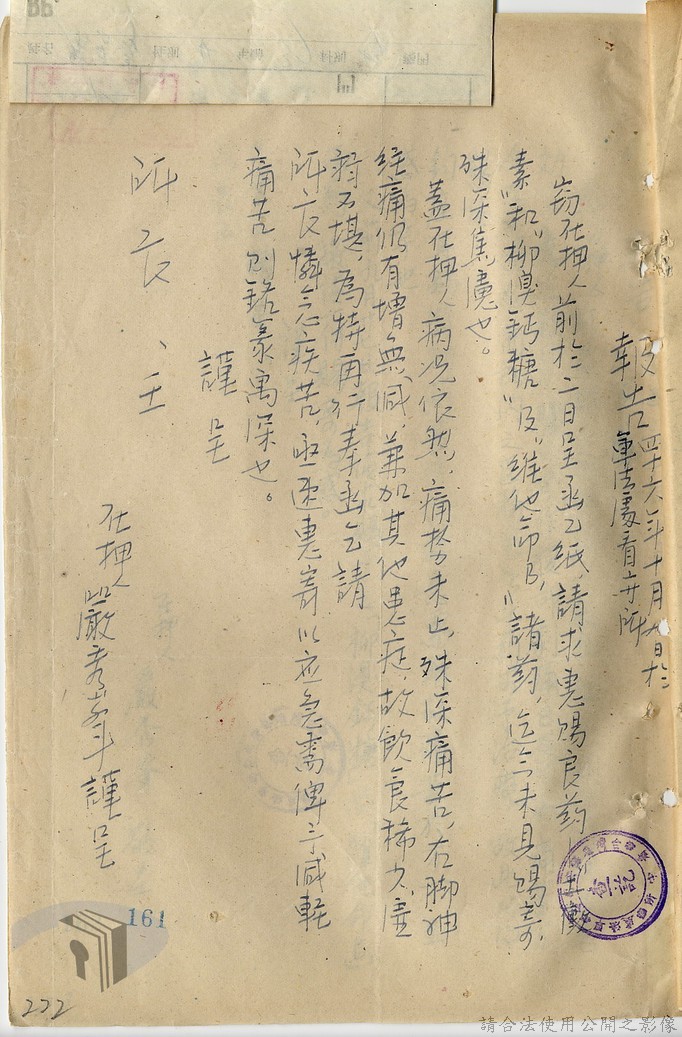 報告 四十六年十月九日於
軍法處看守所
竊在押人前於二日呈函乙紙，請求惠賜良药
素”和“柳溴鈣糖”及“維他命B，”諸药，迄今未見賜寄，
殊深焦慮也。
蓋在押人病況依然，痛势未止，殊深痛苦，右脚神
經痛仍有增無減，兼加其他患症，故飲食稀少，虛
弱不堪，為特再行奉函乞請
所長憐念疾苦，亟速惠寄以应急需俾予減輕
痛苦則銘篆寓深也。
謹呈
所長、王
在押人嚴秀峯謹呈
161
272
請合法使用公開之影像